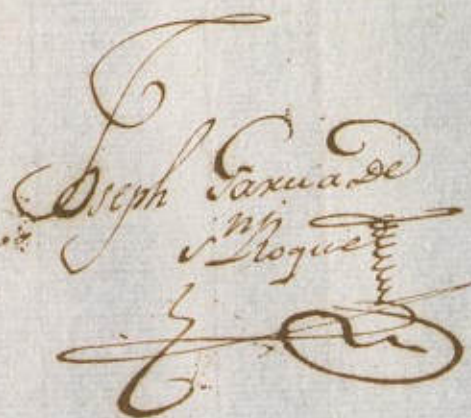 Joseph Garcia de
Sn Roque